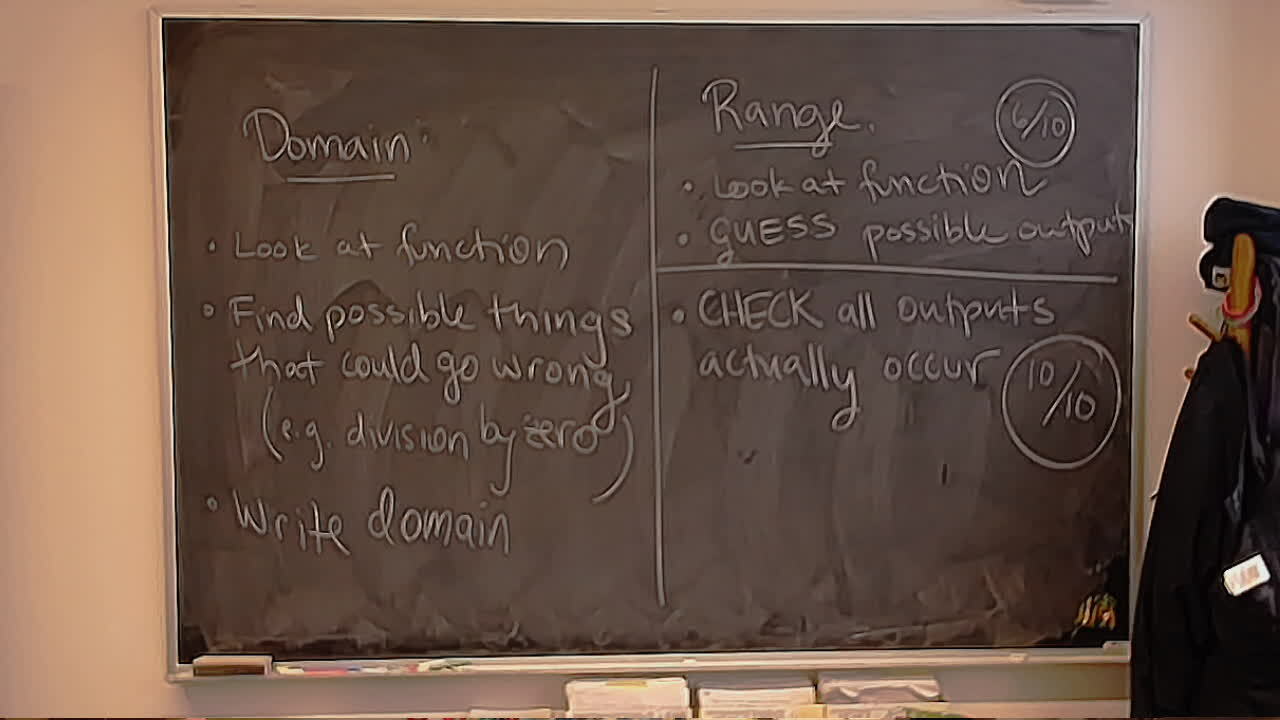 Domain:
• Look at function
• Find possible things
that could go wrong
(e.g. division by zero)
• Write domain
Range.
6/10
• Look at function
• GUESS possible outputs
• CHECK all outputs
actually occur
10/10